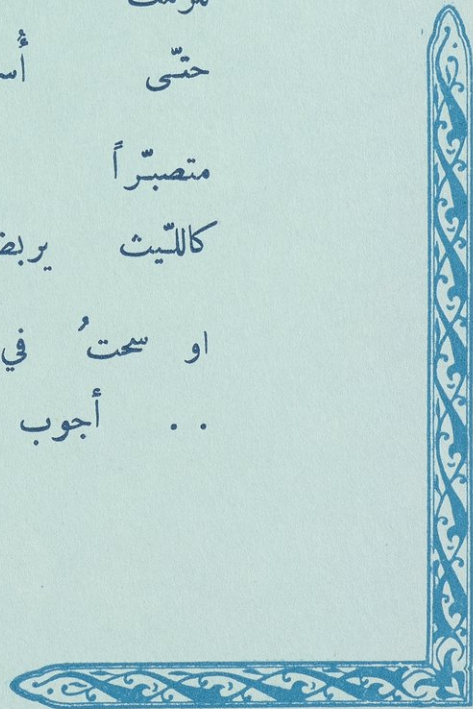 حتّى
متصبّراً
كاللّيث
او سحتُ في
. . أجوب